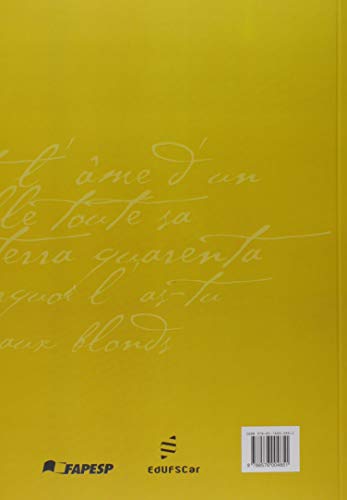 t l'âme d'un
llé toute sa
terra quarenta
rquoi l'as-tu
aux blonds
FAPESP
EdUFSCar